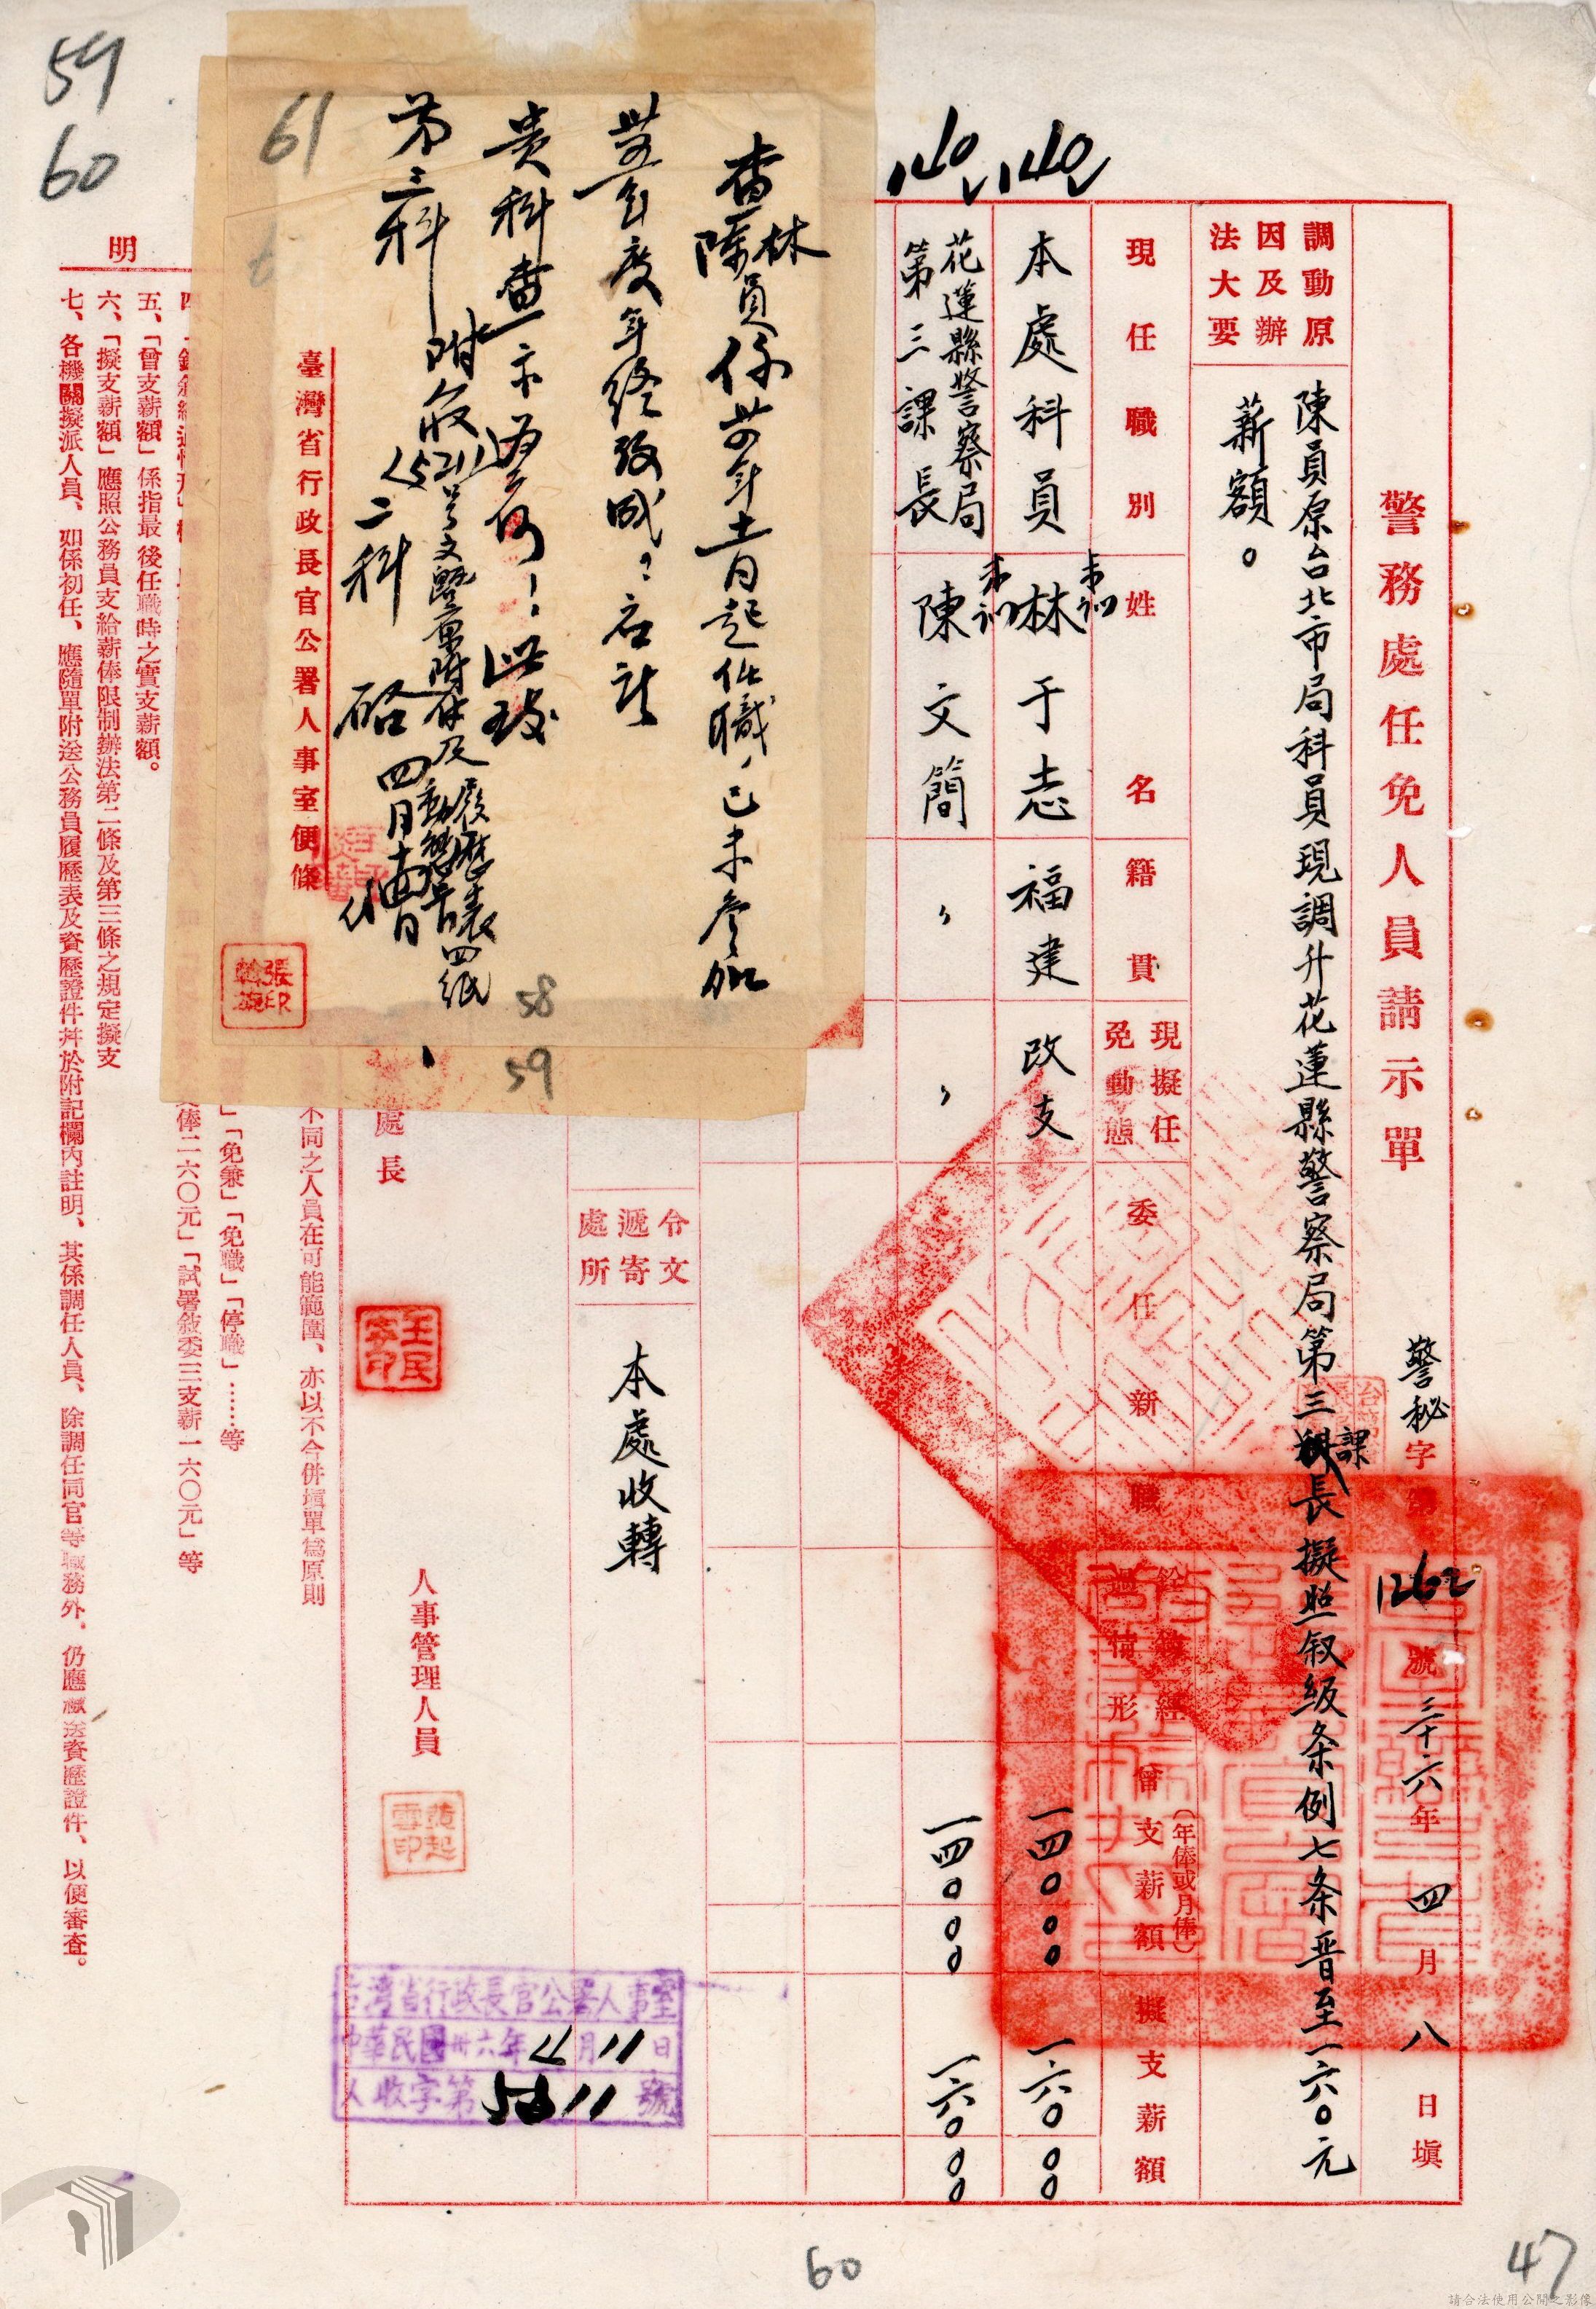 警務處任免人員請示單
警秘字第1262號三十六年四月八日填
調動原因及辦法大要
陳員原台北市局科員現調升花蓮縣警察局第三課長擬照叙級条例七条晋至一六〇元
薪額。
現任職別
姓名
籍貫
現擬任免動態
委任新職
銓敍經過情形
曾支薪額
(年俸或月俸)
擬支薪額
140
本處科員
未訓
林于志
福建
改支
一四〇〇〇
一六〇〇〇
140
花蓮縣警察局
第三課長
未訓
陳文簡
〃
〃
一四〇〇〇
一六〇〇〇
令文遞寄處所
本處收轉
處長
王民寧印
人事管理人員
黃起雲印
台灣省行政長官公署人事室
中華民國卅六年4月11日
人收字第5211號
不同之人員在可能範圍、亦以不合併塡單爲原則
」「免兼」「免職」「停職」……等
俸二六〇元」「試署敍委三支薪一六〇元」等
五、「曾支薪額」係指最後任職時之實支薪額。
六、「擬支薪額」應照公務員支給薪俸限制辦法第二條及第三條之規定擬支
七、各機關擬派人員、如係初任、應隨單附送公務員履歷表及資歷證件幷於附記欄內註明、其係調任人員、除調任同官等職務外、仍應檢送資歷證件、以便審查。
明
查林陳員係卅五年十一月起任職，已未參加
卅五年度年終考成？右請
貴科查示為荷！此致
第三科
附收(5211)号文暨原附件及履歷表動態登記四紙
二科 啓 四月十四日
臺灣省行政長官公署人事室便條
59
60
61
58
59
60
47
請合法使用公開之影像